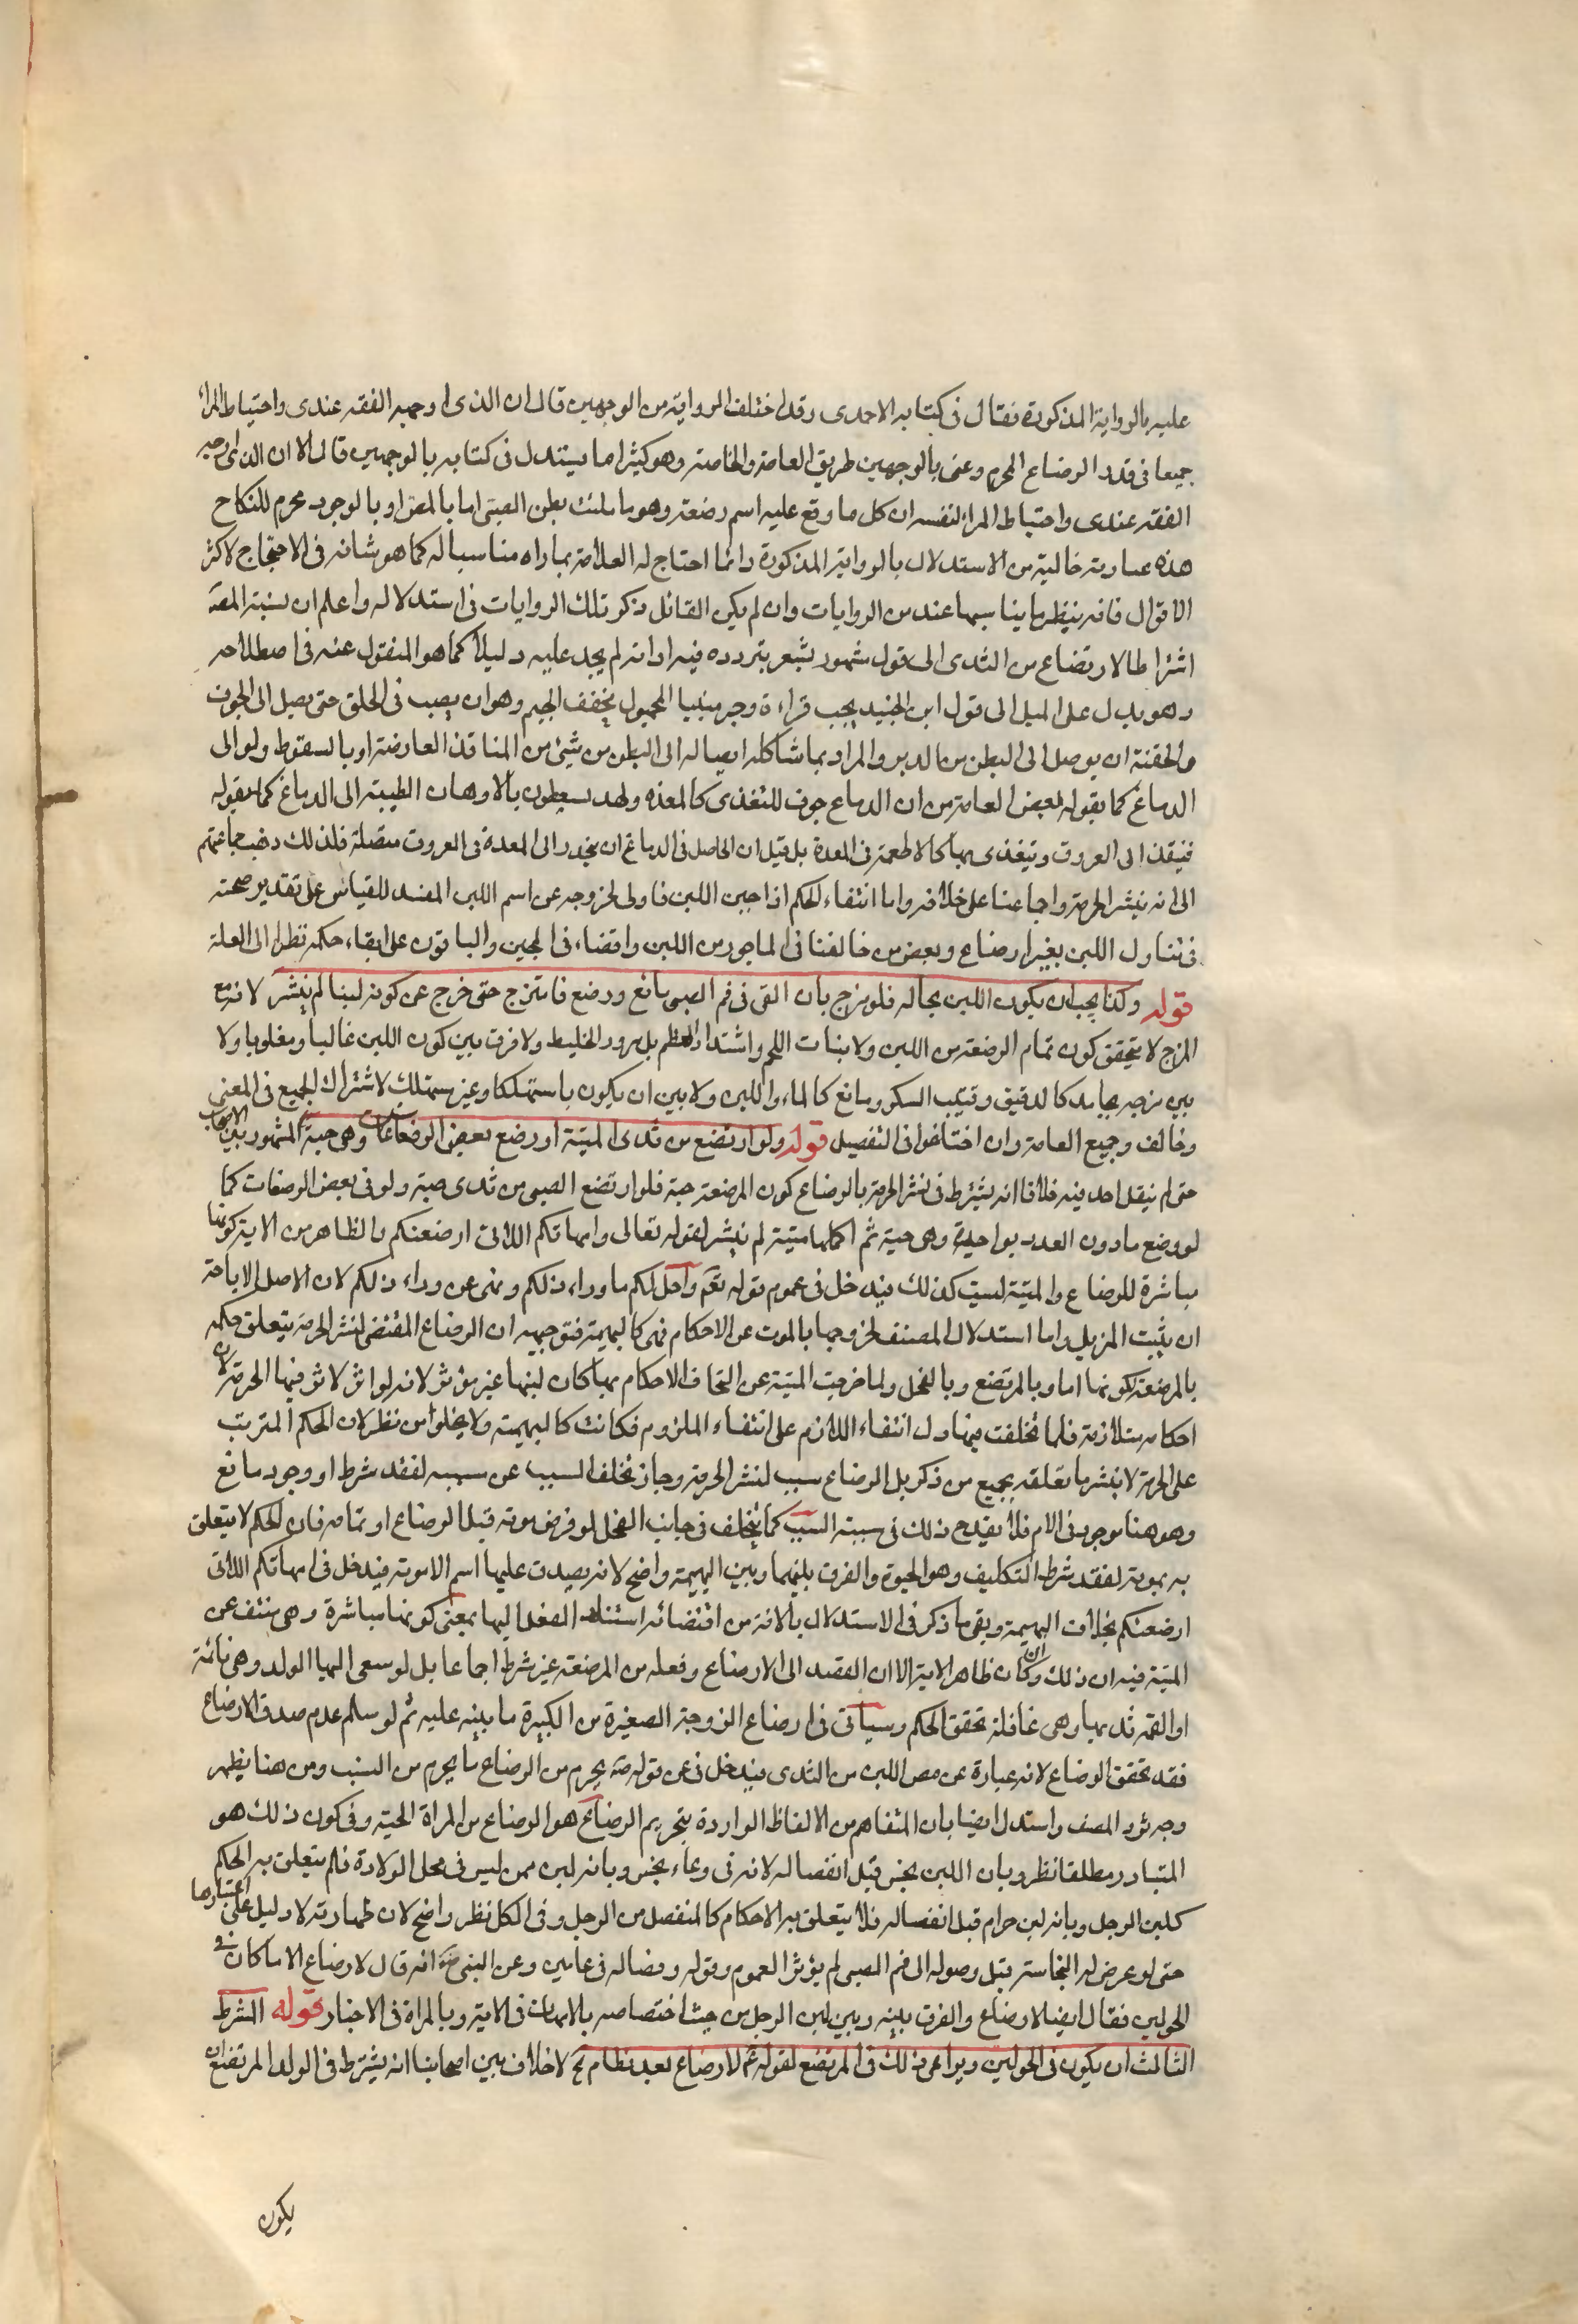 عليه بالرواية المذكورة فقال في كتابه الاحمدى وقد اختلف الرواية من الوجهين قال ان الذى اوجبه الفقه عندى واحتياط المراء
جميعا في قدر الرضاع المحرم وعنى بالوجهين طريق العامة والخاصة وهو كثيرا ما يستدل في كتابه بالوجهين قال الا ان الذى اوجبه
الفقه عندى واحتياط المرا لنفسه ان كل ما وقع عليه اسم رضعة وهو ما ملئت بطن الصبى اما بالمص او بالوجور محرم للنكاح
هذه عبارته خالية من الاستدلال بالرواية المذكورة وانما احتاج له العلامة بما راه مناسبا له كما هو شانه في الاحتجاج لاكثر
الاقوال فانه ينظر ما يناسبها عنده من الروايات وان لم يكن القائل ذكر تلك الروايات في استدلاله واعلم ان نسبة المصة
اشتراط الارتضاع من الثدى الى قول مشهور يشعر بتردده فيه او انه لم يجد عليه دليلا كما هو المنقول عنه في اصطلاحه
وهو يدل على الميل الى قول ابن الجنيد يجب قراءة وجر مبنيا المجهول بخفف الجيم وهو ان يصب في الحلق حتى يصل الى الجوف
والحقنة ان يوصل الى البطن من الدبر والمراد بما شاكله ايصاله الى البطن من شيئ من المنافذ العارضة او بالسقوط ولو الى
الدماغ كما يقوله بعض العامة من ان الدماع جوف للتغذى كالمعده ولهد يسعطون بالاوهان الطيبة الى الدماغ كما يقوله
فينفذ الى العروق ويتغذى بها كالاطعمة في المعدة بل قيل ان الحاصل في الدماغ ان ينحدر الى المعدة في العروق متصلة فلذلك ذهب جماعتهم
الى انه ينشر الحرمة واجماعنا على خلافه واما انتفاء الحكم اذا جبن اللبن فاولى لخروجه عن اسم اللبن المفسد للقياس على تقدير صحته
في تناول اللبن بغير ارضاع وبعض من خالفنا في الماجور من اللبن واقتضاء في الجبن والباقون على ابقاء حكمه نظرا الى العلة
قوله وكذا يجب ان يكون اللبن بحاله فلو مزج بان القى في فم الصبى مائع ورضع فامتزج حتى خرج عن كونه لبنا لم ينشر لانه مع
المزج لا يتحقق كون تمام الرضعة من اللبن ولا بنات اللحم واشتداد العظم بل به والخليط ولا فرق بين كون اللبن غالبا ومغلوبا ولا
بين مزجه بجامد كالدقيق وفتيت السكر ومائع كالماء واللبن ولا بين ان يكون باستهلكا وغير مستهلك لاشتراك الجميع في المعنى
وخالف وجميع العامة وان اختلفوا في التفصيل قوله ولو ارتضع من ثدى الميتة او رضع بعض الرضعات وهى حية المشهور بين الاصحاب
حتى لم ينقل احد فيه خلافا انه يشترط في نشر الحرمة بالرضاع كون المرضعة حية فلو ارتضع الصبى من ثدى ميتة ولو في بعض الرضعات كما
لو رضع ما دون العدد بواحدة وهى حية ثم اكملها ميتة لم ينشر لقوله تعالى وامهاتكم اللاتى ارضعنكم والظاهر من الاية كونها
مباشرة للرضاع والميتة ليست كذلك فيدخل في عموم قوله تعم واحل لكم ما وراء ذلكم ونمنى عن وراء ذلكم لان الاصل الاباحة
ان يثبت المزيل واما استدلال المصنف لخروجها بالموت عن الاحكام فهى كالبهيمة فتوجيهه ان الرضاع المقتضى لنشر الحرمة يتعلق حكمه
بالمرضعة لكونها اما وبالمرتضع وبالفحل ولما خرجت الميتة عن التحاق الاحكام بها كان لبنها غير مؤثر لانه لو اثر لاثر فيها الحرمة لان
احكامه متلازمة فلما تخلفت فيها دل انتفاء اللازم على انتفاء الملزوم فكانت كالبهيمة ولا يخلو من نظر لان الحكم المترتب
على الحرمة لا ينشر ما تعلقه بجميع من ذكر بل الرضاع سبب لنشر الحرمة وجاز تخلف السبب عن سببه لفقد شرط او وجود مانع
وهو هنا موجود في الام فلا يقدح ذلك في سببية السبب كما يتخلف في جانب الفحل لو فرض موته قبل الرضاع او تمامه فان الحكم لا يتعلق
به بموته لفقد شرط التكليف وهو الحيوة والفرق بينهما وبين البهيمة واضح لانه يصدق عليها اسم الامومة فيدخل في امهاتكم اللاتى
ارضعنكم بخلاف البهيمة وبقى ما ذكر في الاستدلال بالاية من اقتضائه استناد الفعل اليها بمعنى كونها مباشرة وهى منتف عن
الميتة فيه ان ذلك وان كان ظاهر الاية الا ان القصد الى الارضاع وفعله من المرضعة غير شرط اجماعا بل لو سعى اليها الولد وهى نائمة
او القمته ثديها وهى غافلة تحقق الحكم وسياتى في ارضاع الزوجة الصغيرة من الكبيرة ما ينبه عليه ثم لو سلم عدم صدق الارضاع
فقد تحقق الرضاع لانه عبارة عن مص اللبن من الثدى فيدخل في عن قوله صه يحرم من الرضاع ما يحرم من النسب ومن هنا يظهر
وجه تردد المصنف واستدل ايضا بان المتفاهم من الالفاظ الواردة بتحريم الرضاع هو الرضاع من المراة الحية وفي كون ذلك هو
المتبادر مطلقا نظر وبان اللبن نجس قبل انفصاله لانه في وعاء نجس وبانه لبن ممن ليس في محل الولادة فلم يتعلق به الحكم
كلبن الرجل وبانه لبن حرام قبل انفصاله فلا يتعلق به الاحكام كالمنفصل من الرجل وفي الكل نظر واضح لان طهارته لا دليل على اعتبارها
حتى لو عرض له النجاسة قبل وصوله الى فم الصبى لم يؤثر العموم وقوله وفصاله في عامين وعن النبى صه انه قال لا رضاع الا ما كان في
الحولين فقال ايضا لا رضاع والفرق بينه وبين لبن الرجل من حيث اختصاصه بالامهات في الاية وبالمراة في الاخبار قوله الشرط
الثالث ان يكون في الحولين ويراعى ذلك في المرتضع لقوله عم لا رضاع بعد فطام تح لا خلاف بين اصحابنا انه يشترط في الولد المرتضع ان
يكون